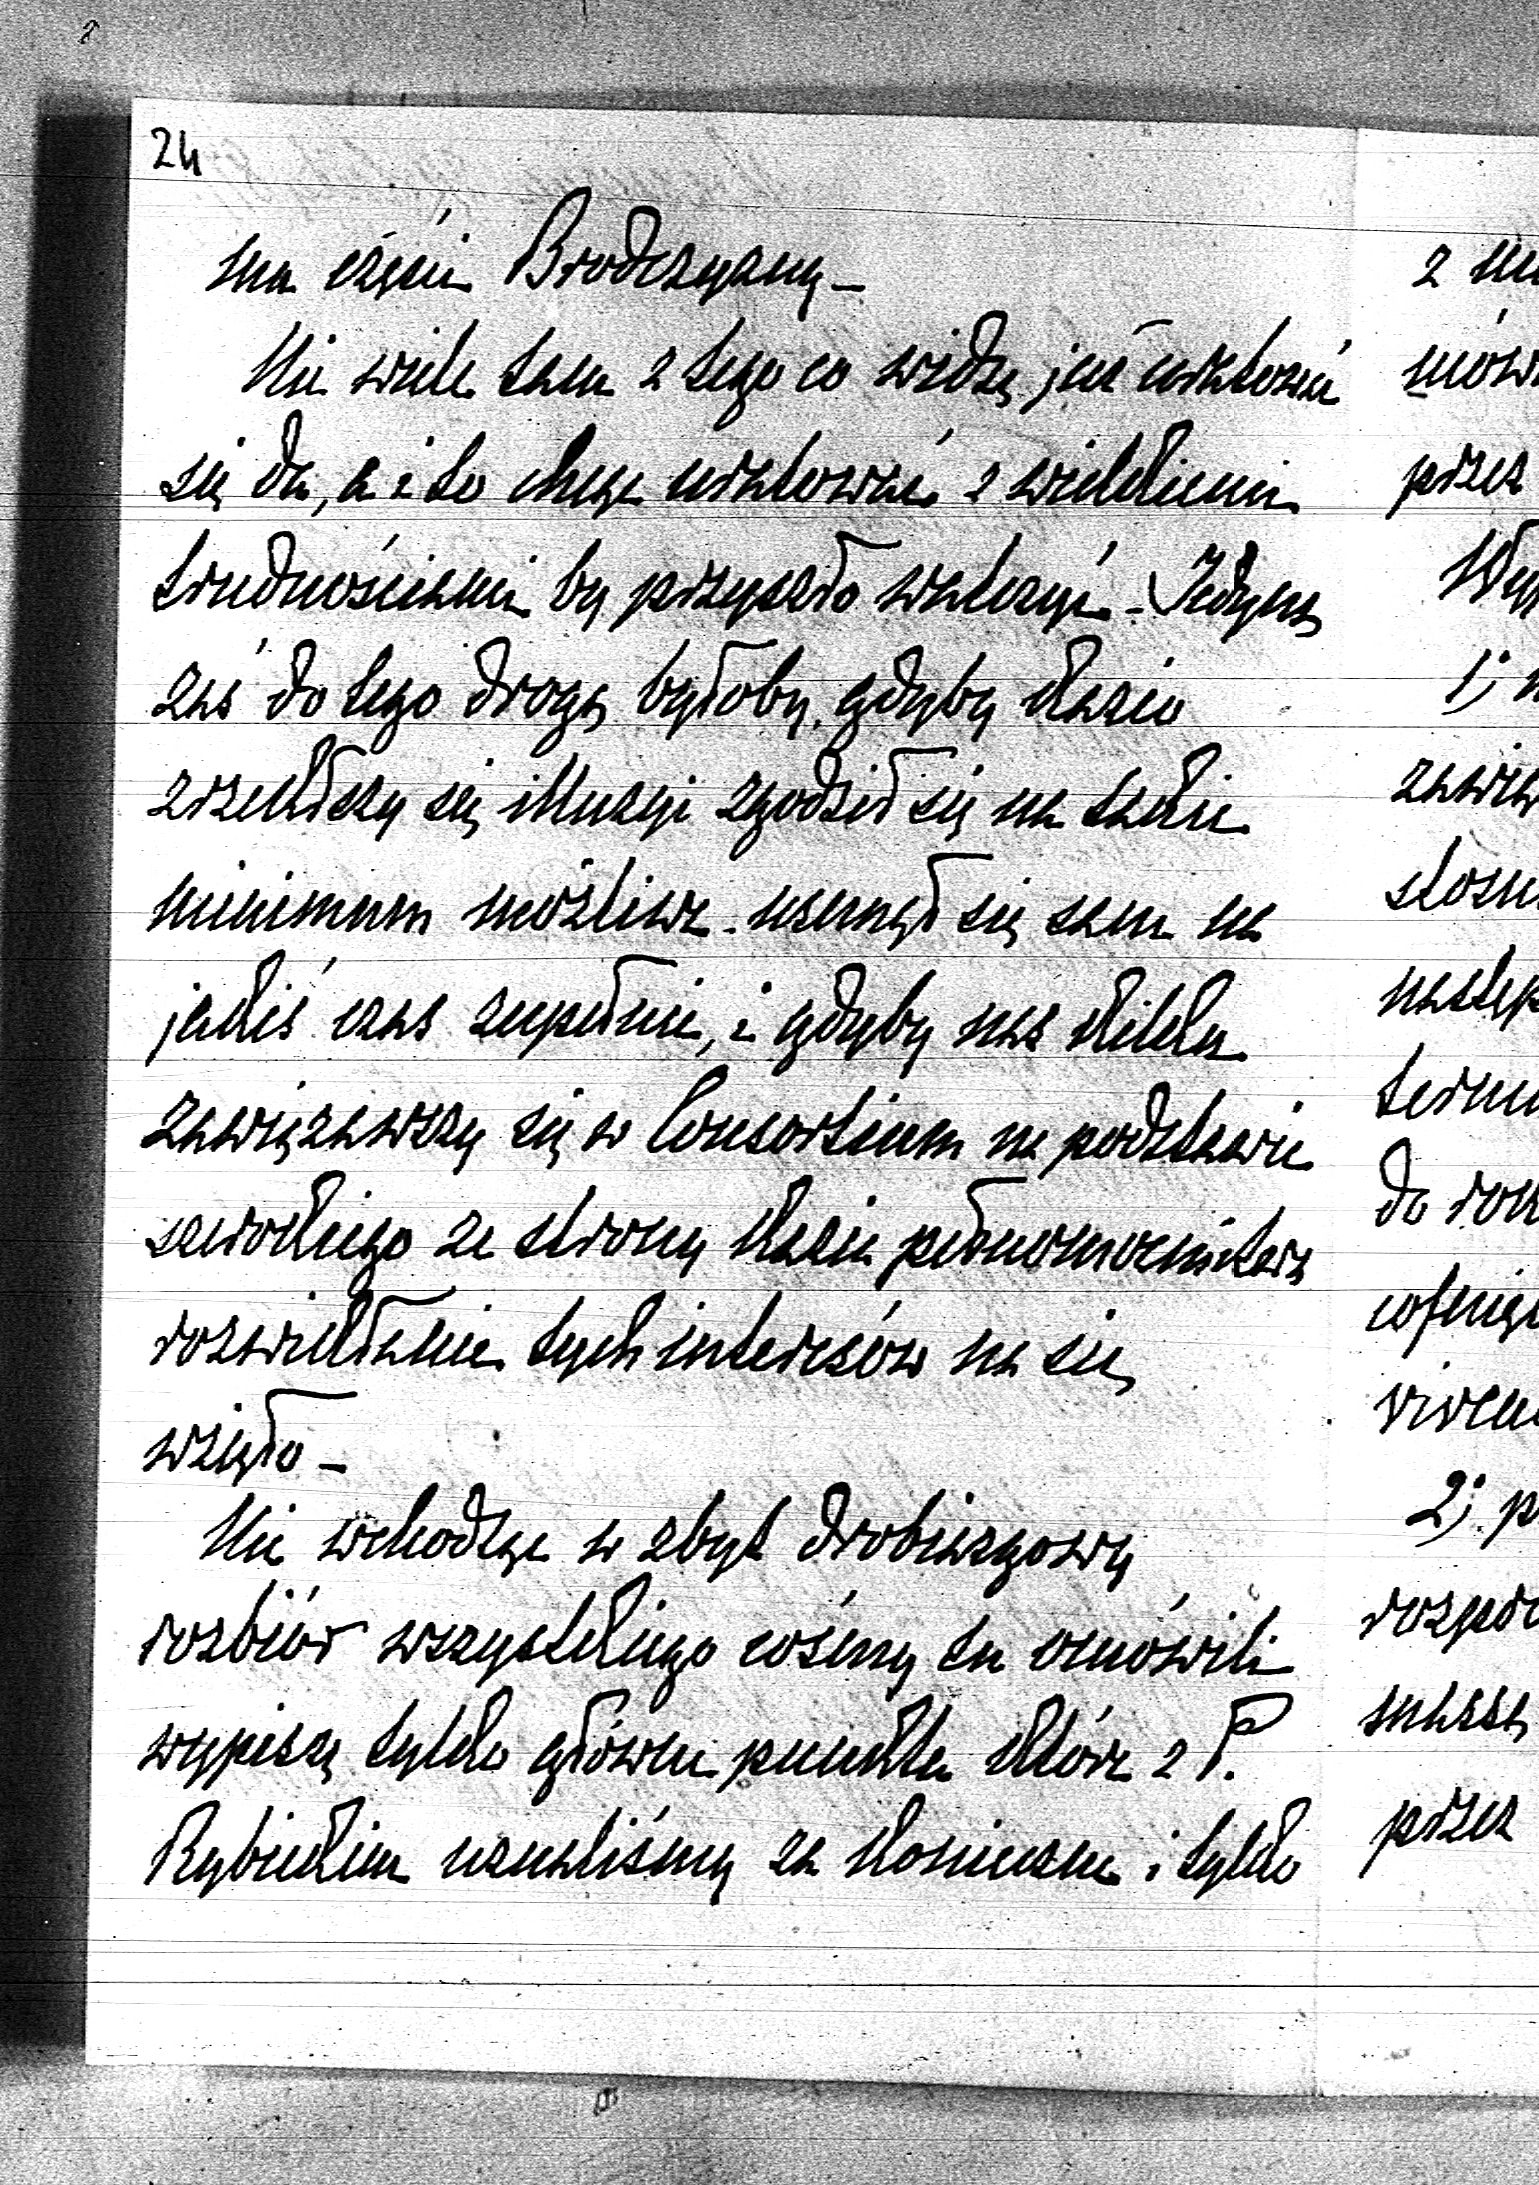 24
na części Brodczyzny –
Nie wiele tam z tego co widzę już uratować
się da, a i to chcąc uratować z wielkiemi
trudnościami by przyszło walczyć – Jedyną
zaś do tego drogą byłoby, gdyby Kazio
zrzekłszy się illuzyi zgodził się na takie
minimum możliwe – usunął się sam na
jakiś czas zupełnie, i gdyby nas kilku
zawiązawszy się w Consortium na podstawie
szerokiego ze strony Kazia pełnomocnictwa
rozwikłanie tych interesów na się
wzięło –
Nie wchodząc w zbyt drobiazgowy
rozbiór wszystkiego cośmy tu omówili
wypiszę tylko główne punkta które z P.
Rybickim uznaliśmy za konieczne i tylko
z
mów
przez
1;
do
2;. p
przez